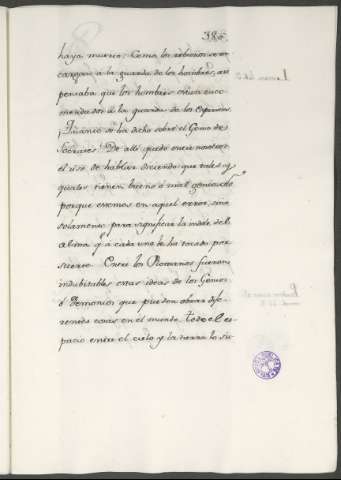 385.
haya muerto. Como los rebaños se en
cargan a la guarda de los hombres, asi
pensaba que los hombres estan enco
mendados à la guarda de los Espiritus.
¡Quánto se ha dicho sobre el Genio de
Socrates! De alli quedo entre nosotros
el uso de hablar diciendo que tales y
quales tienen bueno ó mal genio, no
porque estemos en aquel error, sino
solamente para significar la indole del
alma q.e a cada uno le ha tocado por
suerte. Entre los Romanos fueron
indubitables estas ideas de los Genios
ó Demonios que puedan obrar dife
rentes cosas en el mundo. Todo el es
pacio entre el cielo y la tierra lo su